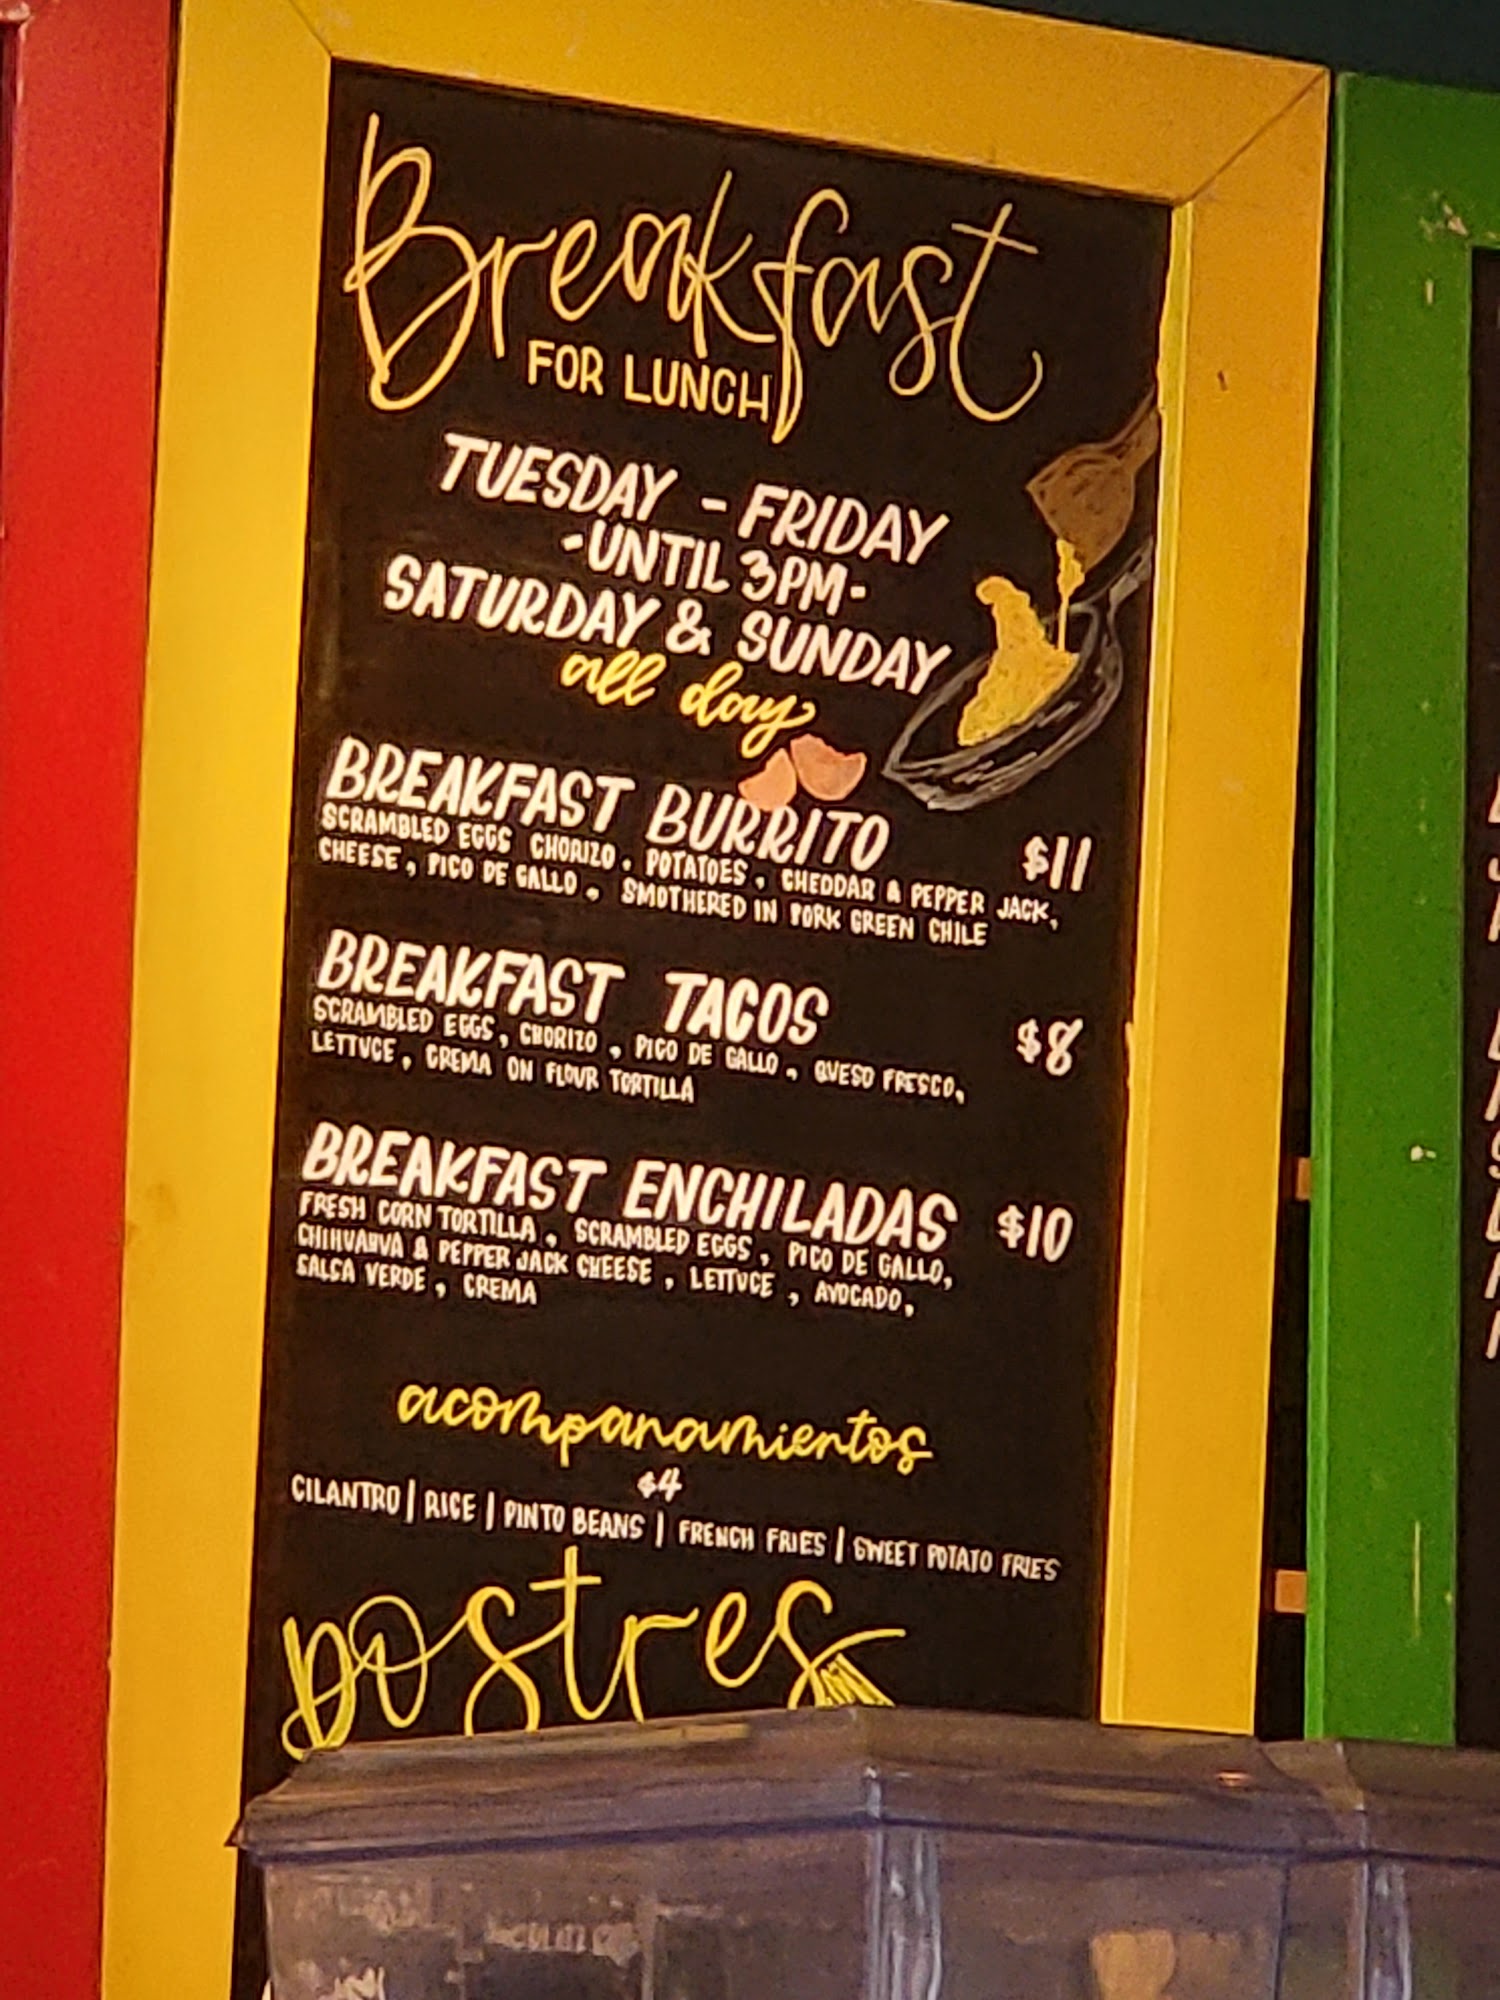 Breakfast
FOR LUNCH
TUESDAY - FRIDAY
-UNTIL 3PM-
SATURDAY & SUNDAY
all day
BREAKFAST BURRITO $11
SCRAMBLED EGGS CHORIZO, POTATOES, CHEDDAR & PEPPER JACK,
CHEESE, PICO DE GALLO, SMOTHERED IN PORK GREEN CHILE
BREAKFAST TACOS $8
SCRAMBLED EGGS, CHORIZO, PICO DE GALLO, QUESO FRESCO,
LETTUCE, CREMA ON FLOUR TORTILLA
BREAKFAST ENCHILADAS $10
FRESH CORN TORTILLA, SCRAMBLED EGGS, PICO DE GALLO,
CHIHUAHUA & PEPPER JACK CHEESE, LETTUCE, AVOCADO,
SALSA VERDE, CREMA
acompanamientos
$4
CILANTRO | RICE | PINTO BEANS | FRENCH FRIES | SWEET POTATO FRIES
postres